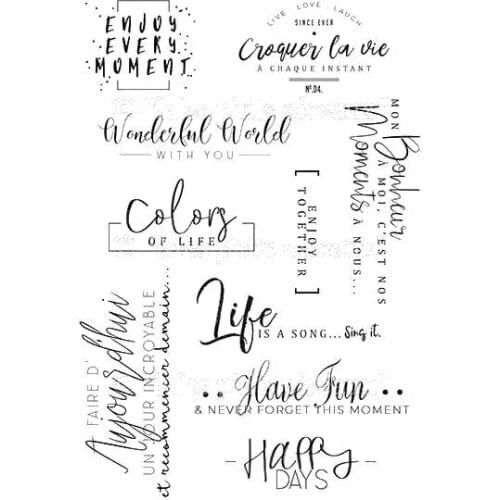 ENJOY
EVERY
MOMENT
LIVE • LOVE • LAUGH
SINCE EVER
Croquer la vie
À CHAQUE INSTANT
Nº.04.
Wonderful World
WITH YOU
MON Bonheur
À MOI, C'EST NOS
Moments À NOUS...
[ ENJOY
TOGETHER ]
Colors
OF LIFE
FAIRE D'
Aujourd'hui
UN JOUR INCROYABLE
et recommencer demain...
Life
IS A SONG... Sing it.
•• Have Fun ••
& NEVER FORGET THIS MOMENT
Happy
DAYS